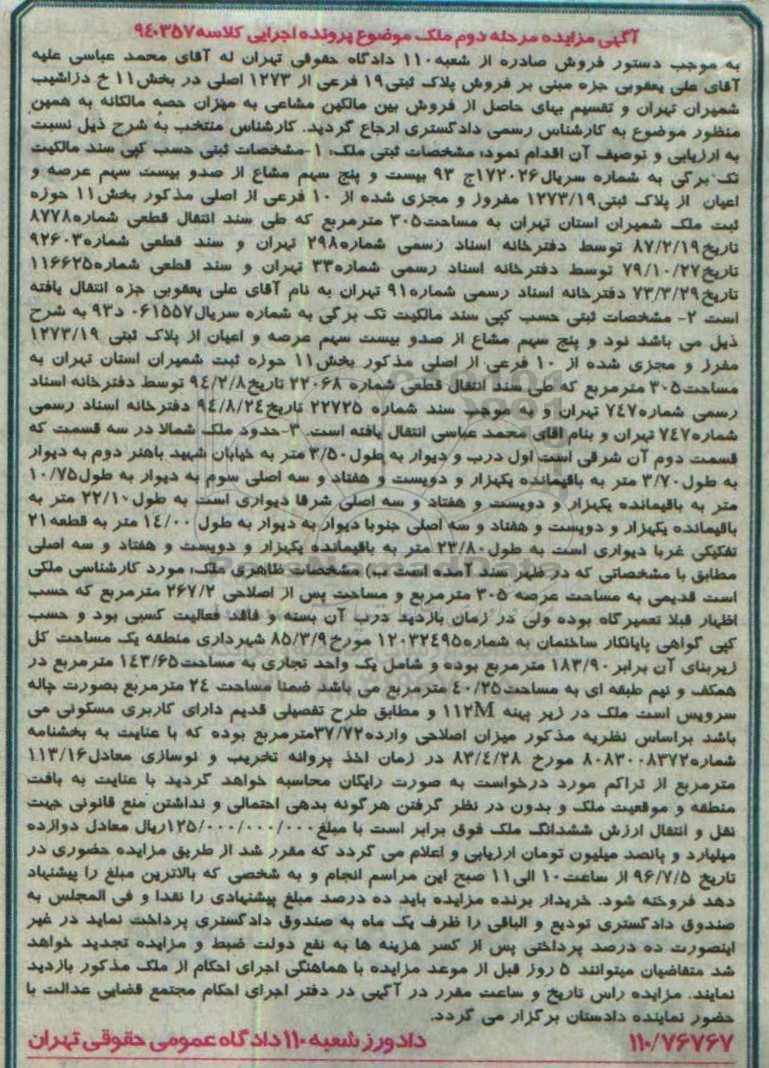 آگهی مزایده مرحله دوم ملک موضوع پرونده اجرایی کلاسه ۹۴۰۳۵۷
به موجب دستور فروش صادره از شعبه ۱۱۰ دادگاه حقوقی تهران له آقای محمد عباسی علیه
آقای علی یعقوبی جزه مبنی بر فروش پلاک ثبتی ۱۹ فرعی از ۱۲۷۳ اصلی در بخش ۱۱ خ دزاشیب
شمیران تهران و تقسیم بهای حاصل از فروش بین مالکین مشاعی به میزان حصه مالکانه به همین
منظور موضوع به کارشناس رسمی دادگستری ارجاع گردید. کارشناس منتخب به شرح ذیل نسبت
به ارزیابی و توصیف آن اقدام نمود، مشخصات ثبتی ملک: ۱-مشخصات ثبتی حسب کپی سند مالکیت
تک برگی به شماره سریال ۱۷۲۰۲۶ج ۹۳ بیست و پنج سهم مشاع از صدو بیست سهم عرصه و
اعیان از پلاک ثبتی ۱۲۷۳/۱۹ مفروز و مجزی شده از ۱۰ فرعی از اصلی مذکور بخش ۱۱ حوزه
ثبت ملک شمیران استان تهران به مساحت ۳۰۵ مترمربع که طی سند انتقال قطعی شماره ۸۷۷۸
تاریخ ۸۷/۲/۱۹ توسط دفترخانه اسناد رسمی شماره ۲۹۸ تهران و سند قطعی شماره ۹۲۶۰۳
تاریخ ۷۹/۱۰/۲۷ توسط دفترخانه اسناد رسمی شماره ۳۳ تهران و سند قطعی شماره ۱۱۶۶۲۵
تاریخ ۷۳/۳/۲۹ دفترخانه اسناد رسمی شماره ۹۱ تهران به نام آقای علی یعقوبی جزه انتقال یافته
است ۲- مشخصات ثبتی حسب کپی سند مالکیت تک برگی به شماره سریال ۰۶۱۵۵۷ د ۹۳ به شرح
ذیل می باشد نود و پنج سهم مشاع از صدو بیست سهم عرصه و اعیان از پلاک ثبتی ۱۲۷۳/۱۹
مفرز و مجزی شده از ۱۰ فرعی از اصلی مذکور بخش ۱۱ حوزه ثبت شمیران استان تهران به
مساحت ۳۰۵ مترمربع که طی سند انتقال قطعی شماره ۲۲۰۶۸ تاریخ ۹۴/۲/۸ توسط دفترخانه اسناد
رسمی شماره ۷۴۷ تهران و به موجب سند شماره ۲۲۷۲۵ تاریخ ۹۴/۸/۲۴ دفترخانه اسناد رسمی
شماره ۷۴۷ تهران و بنام آقای محمد عباسی انتقال یافته است. ۳-حدود ملک شمالا در سه قسمت که
قسمت دوم آن شرقی است اول درب و دیوار به طول ۳/۵۰ متر به خیابان شهید باهنر دوم به دیوار
به طول ۳/۷۰ متر به باقیمانده یکهزار و دویست و هفتاد و سه اصلی سوم به دیوار به طول ۱۰/۷۵
متر به باقیمانده یکهزار و دویست و هفتاد و سه اصلی شرقا دیواری است به طول ۲۲/۱۰ متر به
باقیمانده یکهزار و دویست و هفتاد و سه اصلی جنوبا دیوار به دیوار به طول ۱۴/۰۰ متر به قطعه ۲۱
تفکیکی غربا دیواری است به طول ۲۳/۸۰ متر به باقیمانده یکهزار و دویست و هفتاد و سه اصلی
مطابق با مشخصاتی که در ظهر سند آمده است ب) مشخصات ظاهری ملک: مورد کارشناسی ملکی
است قدیمی به مساحت عرصه ۳۰۵ مترمربع و مساحت پس از اصلاحی ۲۶۷/۲ مترمربع که حسب
اظهار قبلا تعمیرگاه بوده ولی در زمان بازدید درب آن بسته و فاقد فعالیت کسبی بود و حسب
کپی گواهی پایانکار ساختمان به شماره ۱۲۰۳۲۴۹۵ مورخ ۸۵/۳/۹ شهرداری منطقه یک مساحت کل
زیربنای آن برابر ۱۸۳/۹۰ مترمربع بوده و شامل یک واحد تجاری به مساحت ۱۴۳/۶۵ مترمربع در
همکف و نیم طبقه ای به مساحت ۴۰/۲۵ مترمربع می باشد ضمنا مساحت ۲۴ مترمربع بصورت چاله
سرویس است ملک در زیر پهنه ۱۱۲M و مطابق طرح تفصیلی قدیم دارای کاربری مسکونی می
باشد براساس نظریه مذکور میزان اصلاحی وارده ۳۷/۷۲مترمربع بوده که با عنایت به بخشنامه
شماره ۸۰۸۳۰۰۸۳۷۲ مورخ ۸۳/۴/۲۸ در زمان اخذ پروانه تخریب و نوسازی معادل ۱۱۳/۱۶
مترمربع از تراکم مورد درخواست به صورت رایگان محاسبه خواهد گردید با عنایت به بافت
منطقه و موقعیت ملک و بدون در نظر گرفتن هرگونه بدهی احتمالی و نداشتن منع قانونی جهت
نقل و انتقال ارزش ششدانگ ملک فوق برابر است با مبلغ ۱۲۵/۰۰۰/۰۰۰/۰۰۰ریال معادل دوازده
میلیارد و پانصد میلیون تومان ارزیابی و اعلام می گردد که مقرر شد از طریق مزایده حضوری در
تاریخ ۹۶/۷/۵ از ساعت ۱۰ الی ۱۱ صبح این مراسم انجام و به شخصی که بالاترین مبلغ را پیشنهاد
دهد فروخته شود. خریدار برنده مزایده باید ده درصد مبلغ پیشنهادی را نقدا و فی المجلس به
صندوق دادگستری تودیع و الباقی را ظرف یک ماه به صندوق دادگستری پرداخت نماید در غیر
اینصورت ده درصد پرداختی پس از کسر هزینه ها به نفع دولت ضبط و مزایده تجدید خواهد
شد متقاضیان میتوانند ۵ روز قبل از موعد مزایده با هماهنگی اجرای احکام از ملک مذکور بازدید
نمایند. مزایده راس تاریخ و ساعت مقرر در آگهی در دفتر اجرای احکام مجتمع قضایی عدالت با
حضور نماینده دادستان برگزار می گردد.
۱۱۰/۷۶۷۶۷ دادورز شعبه ۱۱۰ دادگاه عمومی حقوقی تهران